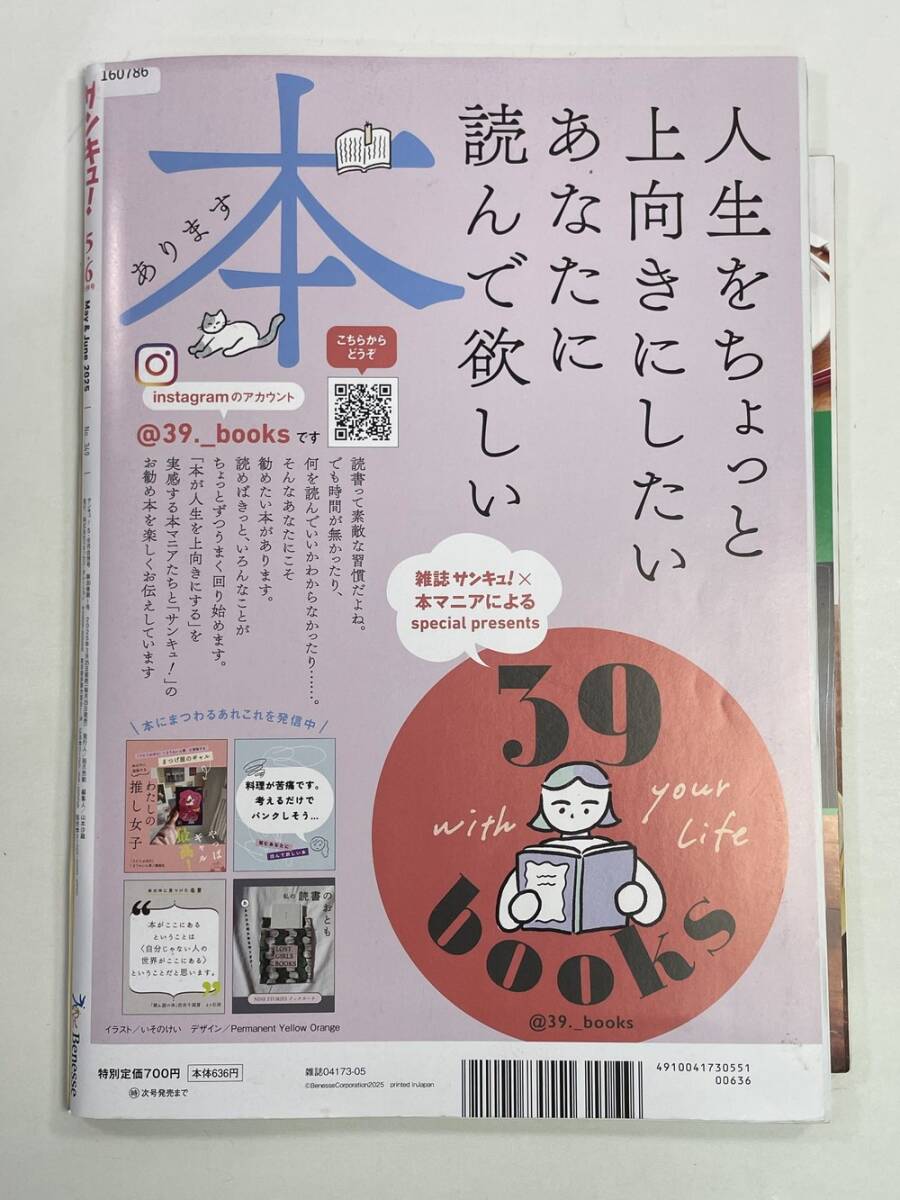 160786
サンキュ!
5・6
May & June 2025
No. 349
Benesse
人生をちょっと
上向きにしたい
あなたに
読んで欲しい
本
あります
instagramのアカウント
@39._booksです
こちらから
どうぞ
読書って素敵な習慣だよね。
でも時間が無かったり、
何を読んでいいかわからなかったり……。
そんなあなたにこそ
勧めたい本があります。
読めばきっと、いろんなことが
ちょっとずつうまく回り始めます。
「本が人生を上向きにする」を
実感する本マニアたちと「サンキュ!」の
お勧め本を楽しくお伝えしています
雑誌サンキュ!×
本マニアによる
special presents
39
with your Life
books
@39._books
本にまつわるあれこれを発信中
まつげ屋のギャル
わたしの
推し女子
やっぱ
ギャルは
最高!
料理が苦痛です。
考えるだけで
パンクしそう…
本がここにある
ということは
〈自分じゃない人の
世界がここにある〉
ということだと思います。
私の読書のおとも
LOST
GIRLS
BOOKS
イラスト/いそのけい デザイン/Permanent Yellow Orange
特別定価700円 本体636円
時 次号発売まで
雑誌04173-05
©BenesseCorporation2025 printed inJapan
4910041730551
00636